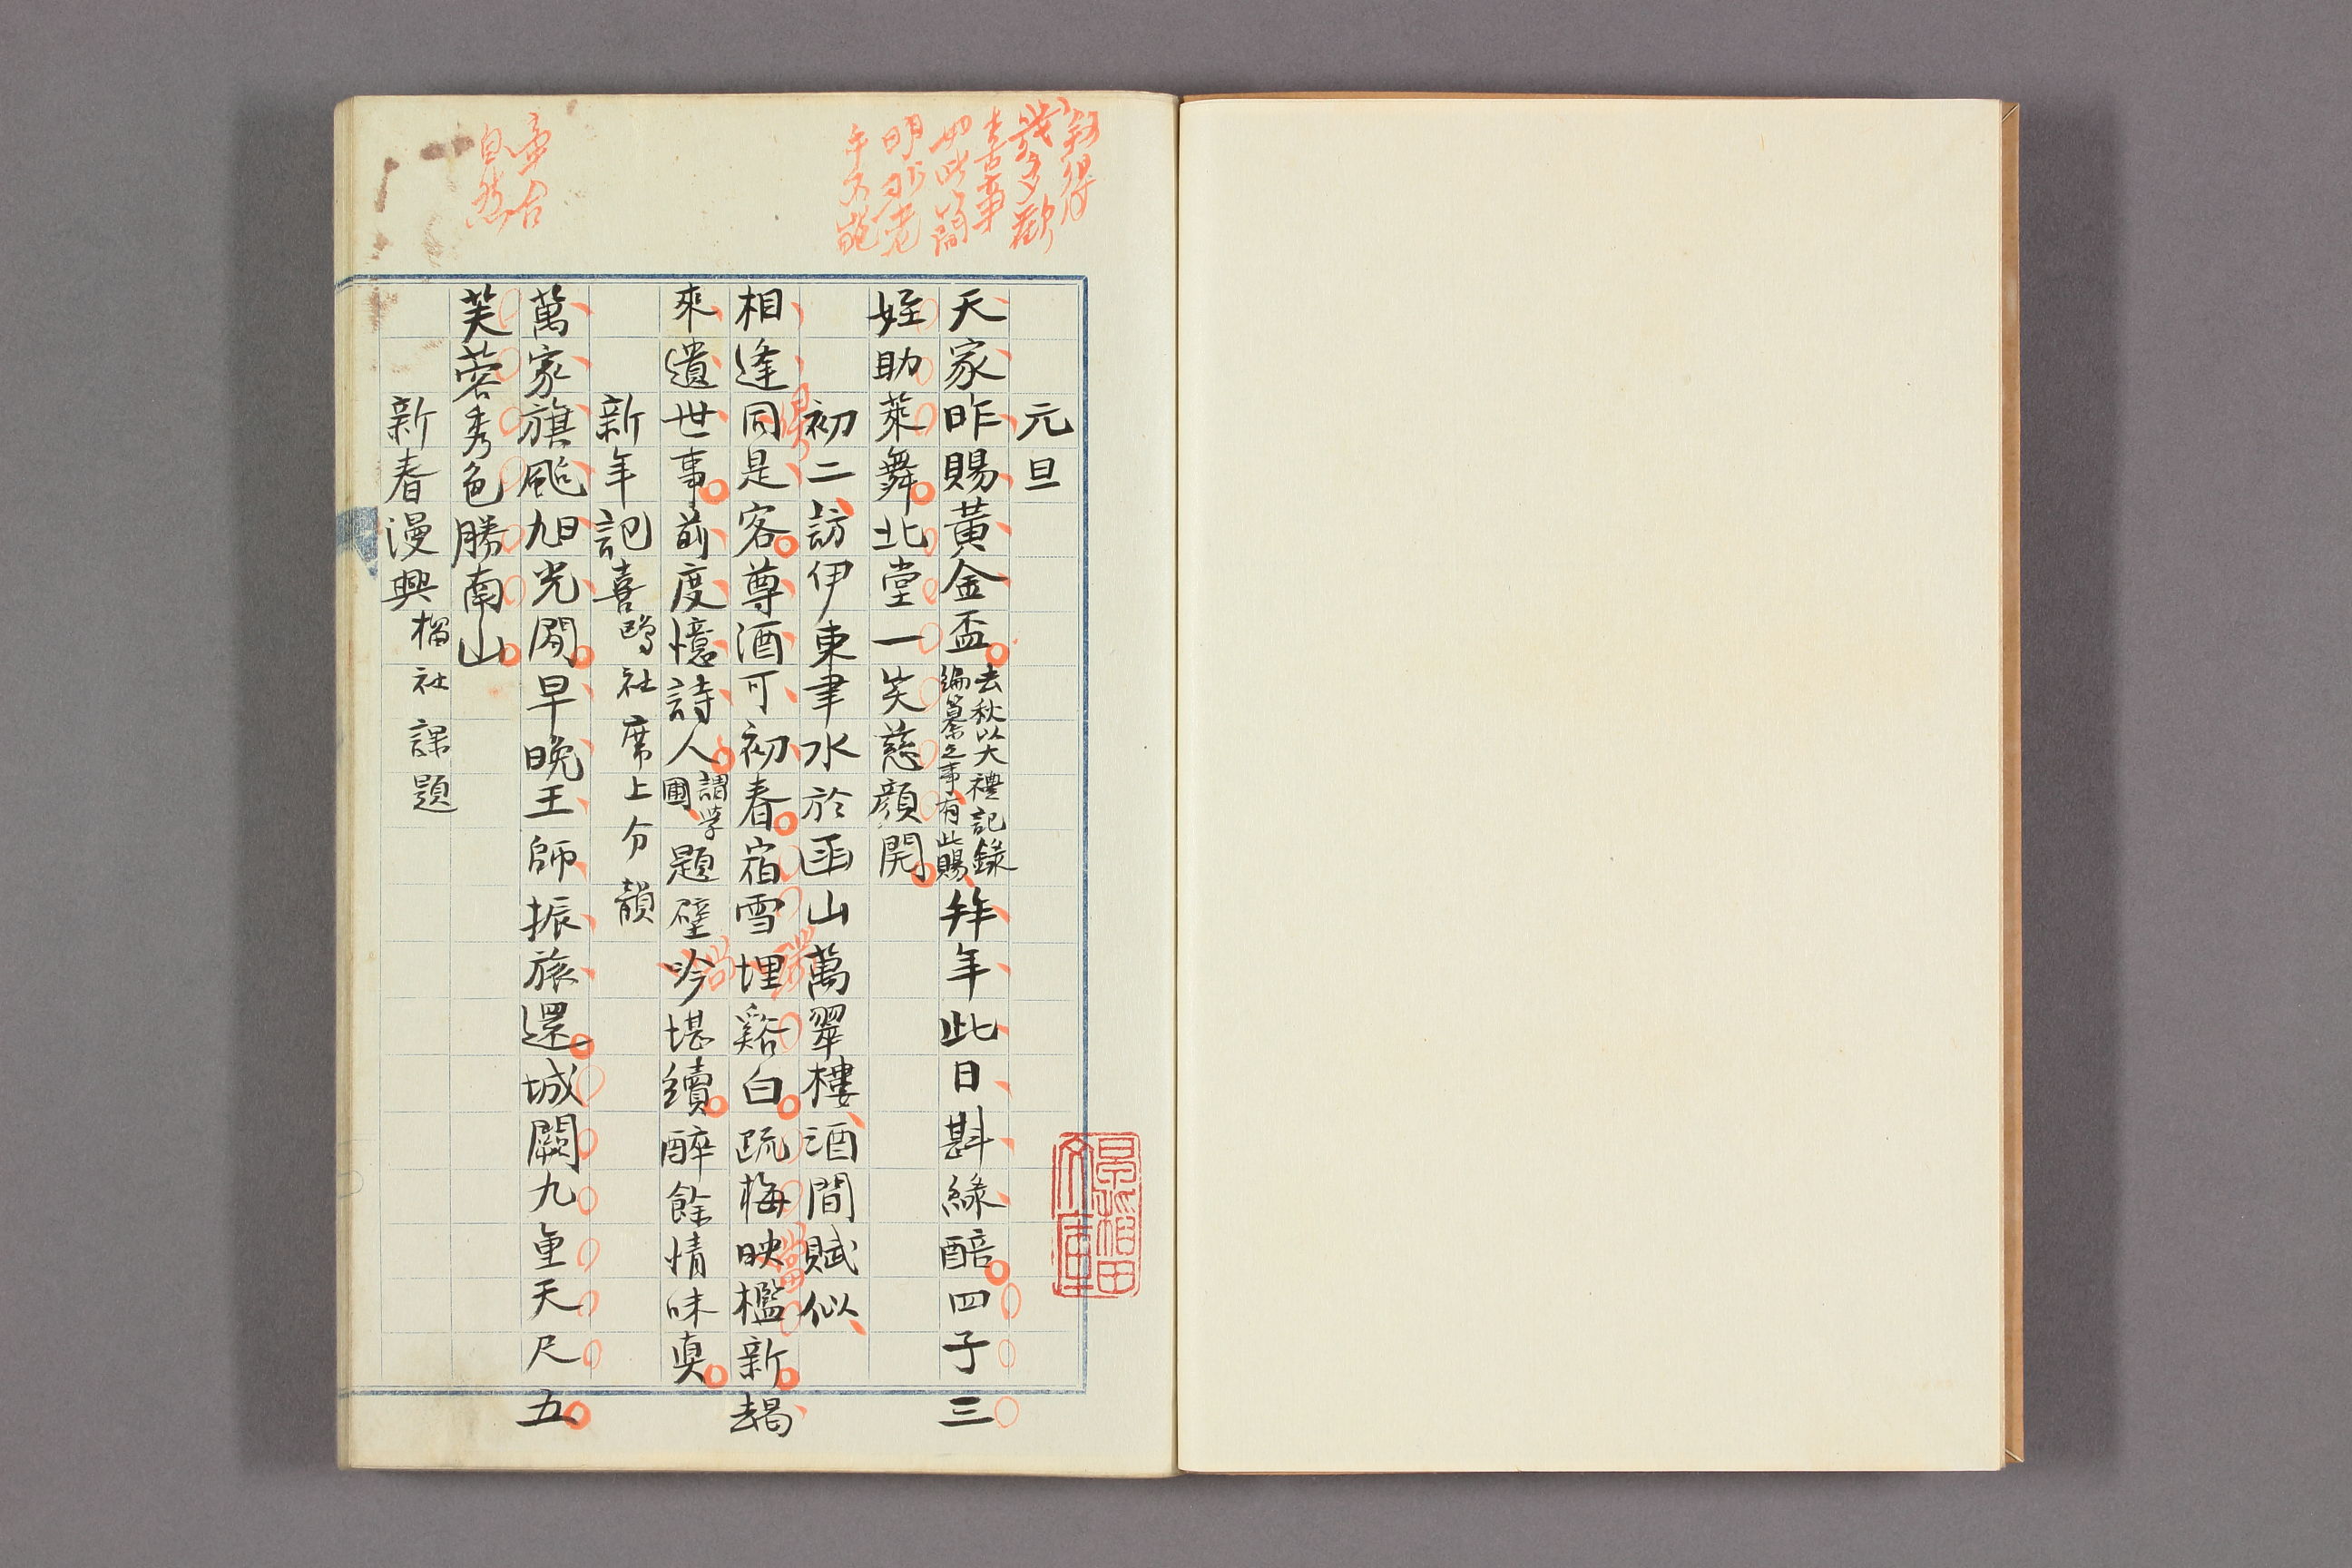 元旦
天家昨賜黃金盃去秋以大禮記錄編纂之事有此賜拜年此日斟綠醅四子三
姪助萊舞北堂一笑慈顏開
初二訪伊東聿水於函山萬翠樓酒間賦似
相逢同是客尊酒可初春宿雪埋谿白疏梅映檻新朅
來遺世事前度憶詩人謂學圃題壁吟堪續醉餘情味真
新年記喜鷗社席上分韻
萬家旗颭旭光閒早晚王師振旅還城闕九重天尺五
芙蓉秀色勝南山
新春漫興榴社課題
敘得
幾多歡
喜事
如此簡
明少老
手不能
自然
早稻田
文庫